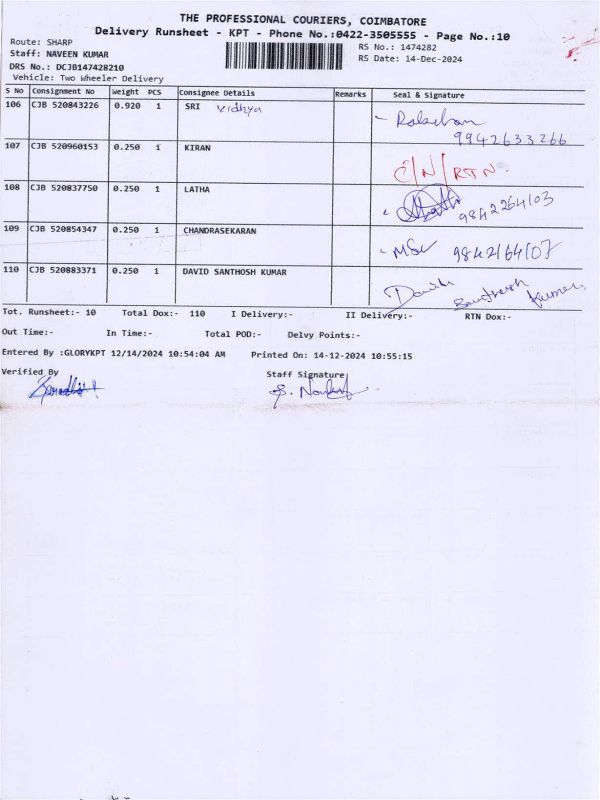 THE PROFESSIONAL COURIERS, COIMBATORE
Delivery Runsheet - KPT - Phone No.:0422-3505555 - Page No.:10
Route: SHARP
RS No.: 1474282
Staff: NAVEEN KUMAR
RS Date: 14-Dec-2024
DRS No.: DCJB147428210
Vehicle: Two Wheeler Delivery
S No Consignment No Weight PCS Consignee Details Remarks Seal & Signature
106 CJB 520843226 0.920 1 SRI Vidhya
9942633266
107 CJB 520960153 0.250 1 KIRAN
C/N/RTN.
108 CJB 520837750 0.250 1 LATHA
9842264103
109 CJB 520854347 0.250 1 CHANDRASEKARAN
9842164107
110 CJB 520883371 0.250 1 DAVID SANTHOSH KUMAR
Santhosh Kumar
Tot. Runsheet:- 10 Total Dox:- 110 I Delivery:- II Delivery:- RTN Dox:-
Out Time:- In Time:- Total POD:- Delvy Points:-
Entered By :GLORYKPT 12/14/2024 10:54:04 AM Printed On: 14-12-2024 10:55:15
Verified By Staff Signature